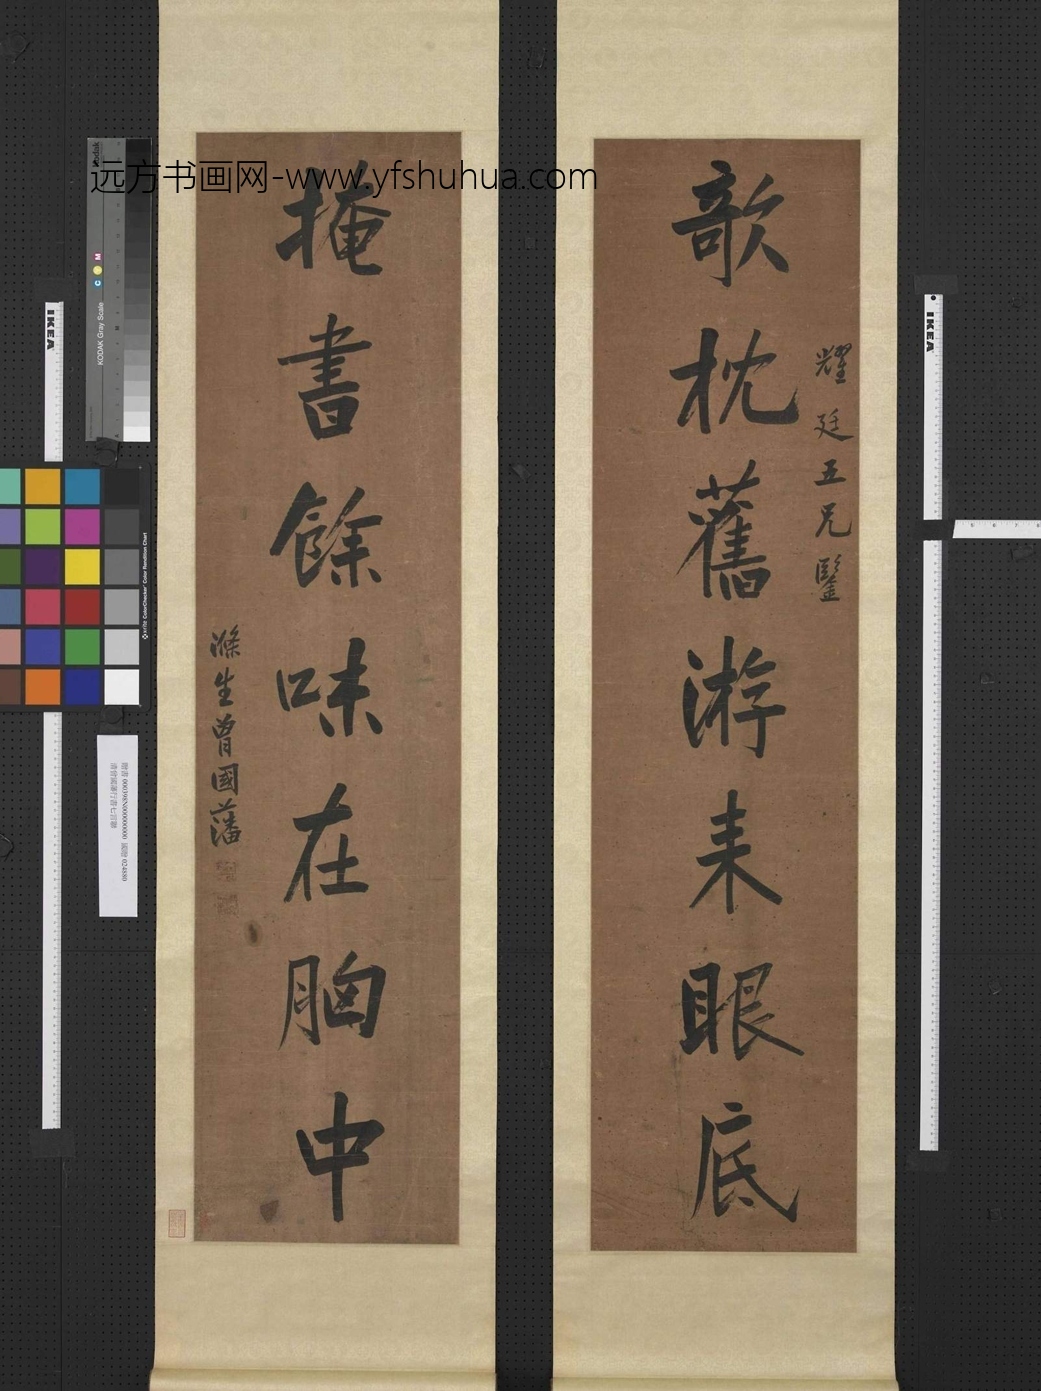 远方书画网-www.yfshuhua.com
耀廷五兄鑒
欹枕舊游来眼底
掩書餘味在胸中
滌生曾國藩
KODAK Gray Scale
Kodak
C Y M
IKEA
IKEA